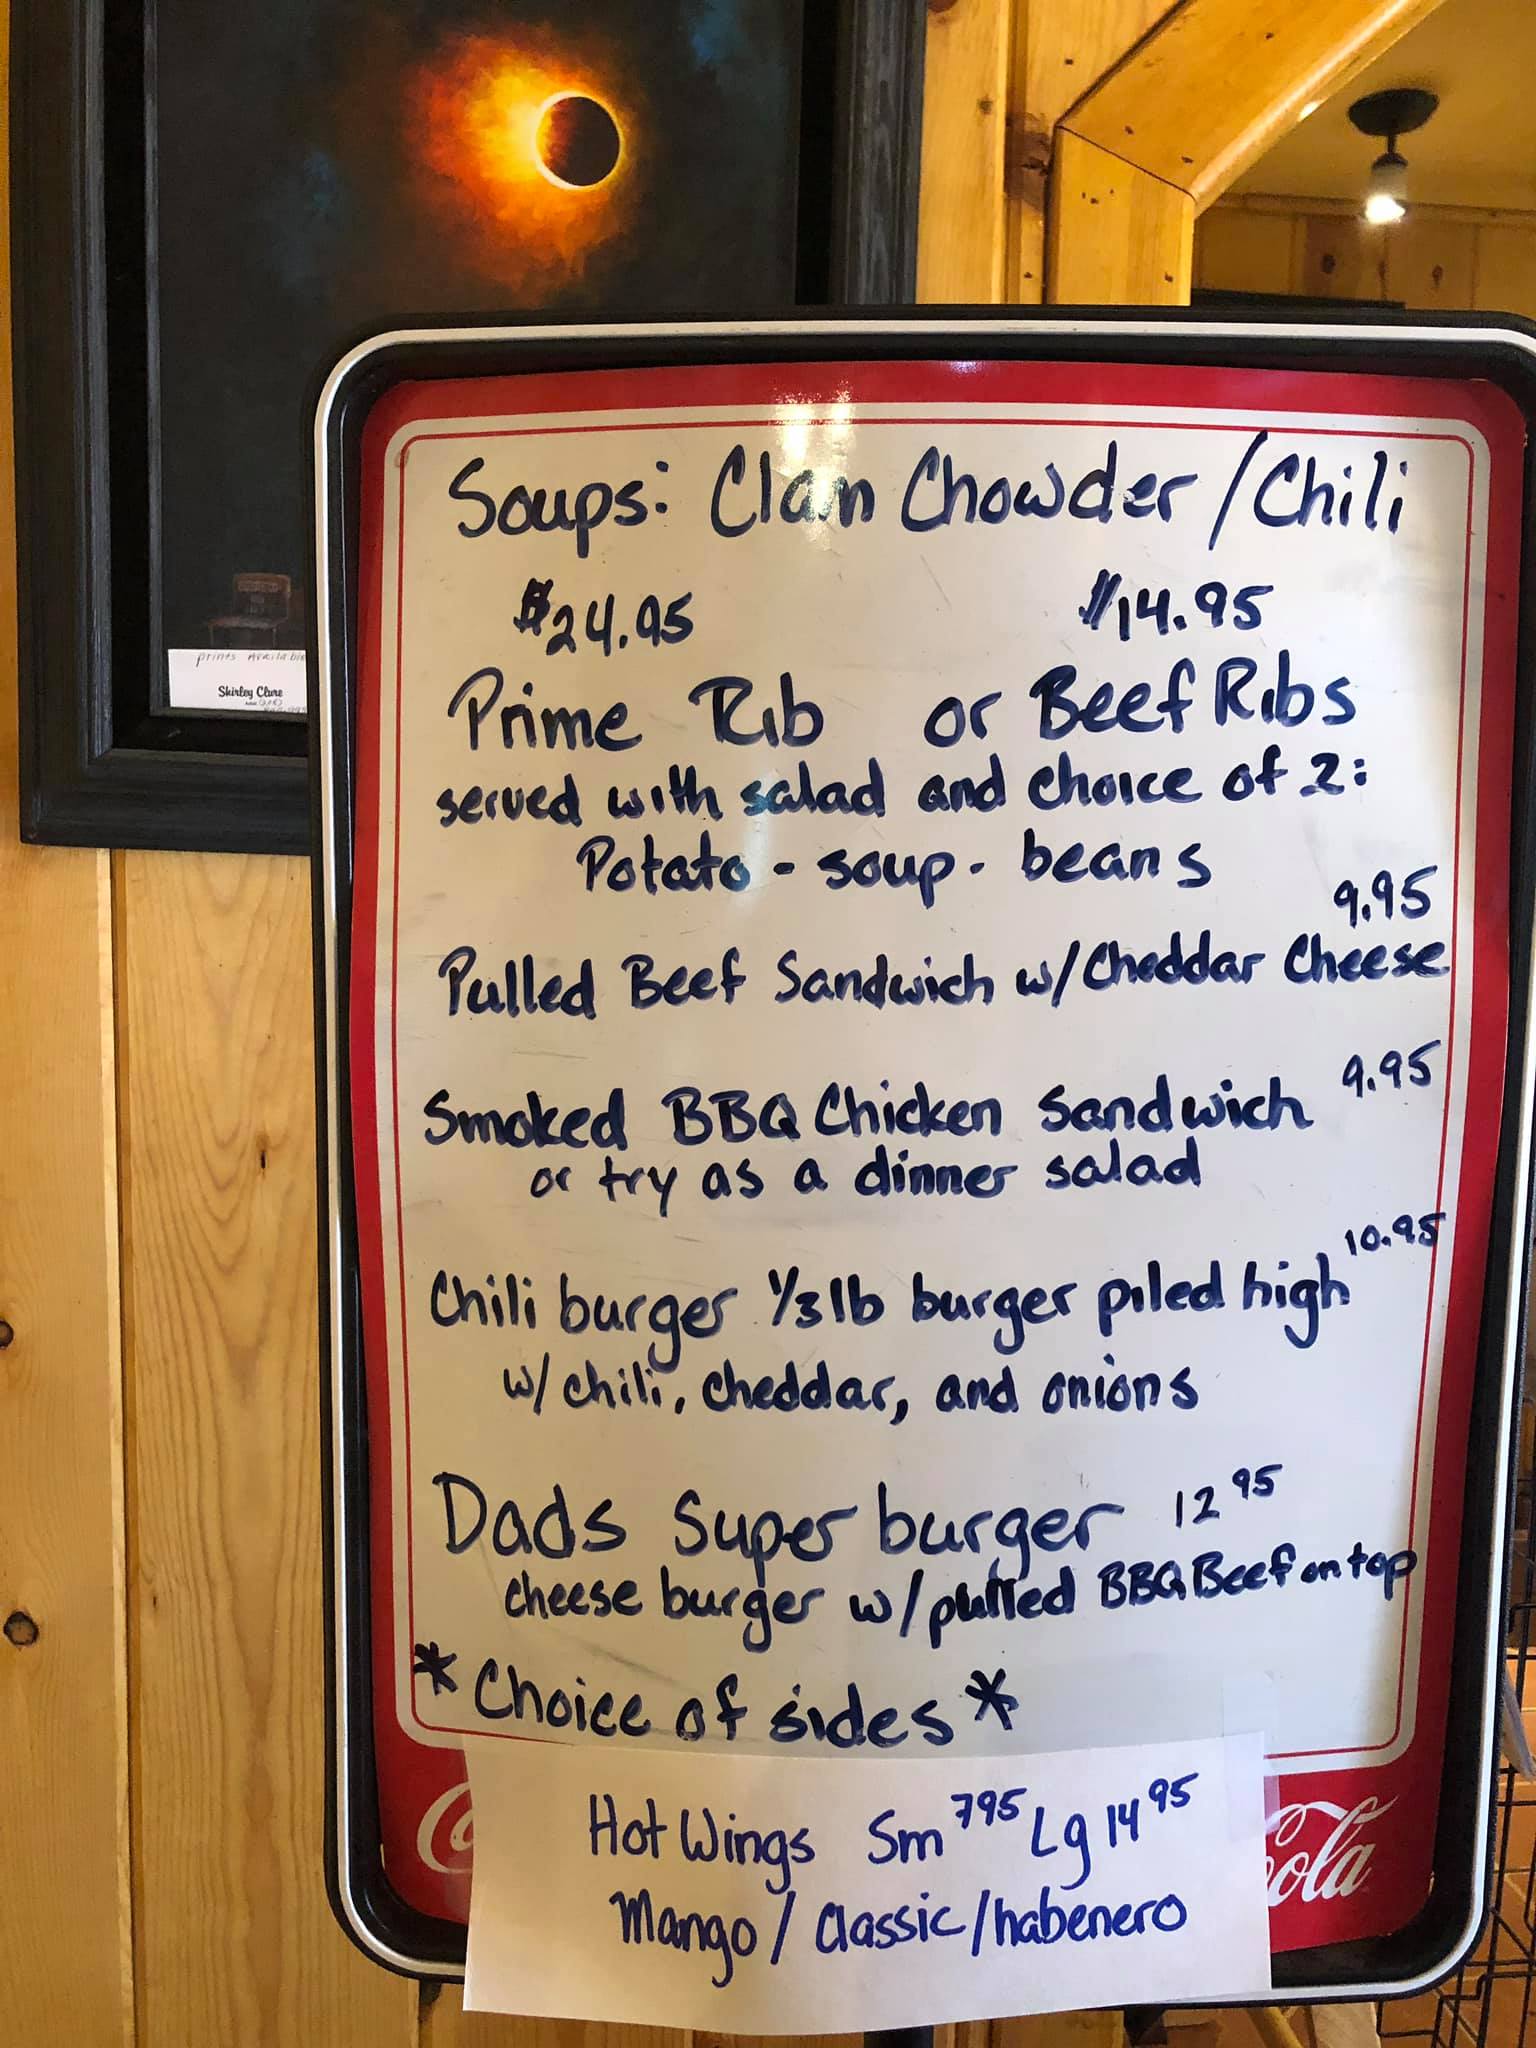 prints Available
Shirley Clure
Soups: Clam Chowder / Chili
$24.95 $14.95
Prime Rib or Beef Ribs
served with salad and choice of 2:
Potato - soup - beans
9.95
Pulled Beef Sandwich w/Cheddar Cheese
Smoked BBQ Chicken Sandwich 9.95
or try as a dinner salad
10.95
Chili burger 1/3 lb burger piled high
w/ chili, cheddar, and onions
Dads Super burger 12 95
cheese burger w/pulled BBQ Beef on top
*Choice of sides*
Hot Wings Sm 795 Lg 14 95
Mango / Classic / habenero
Cola